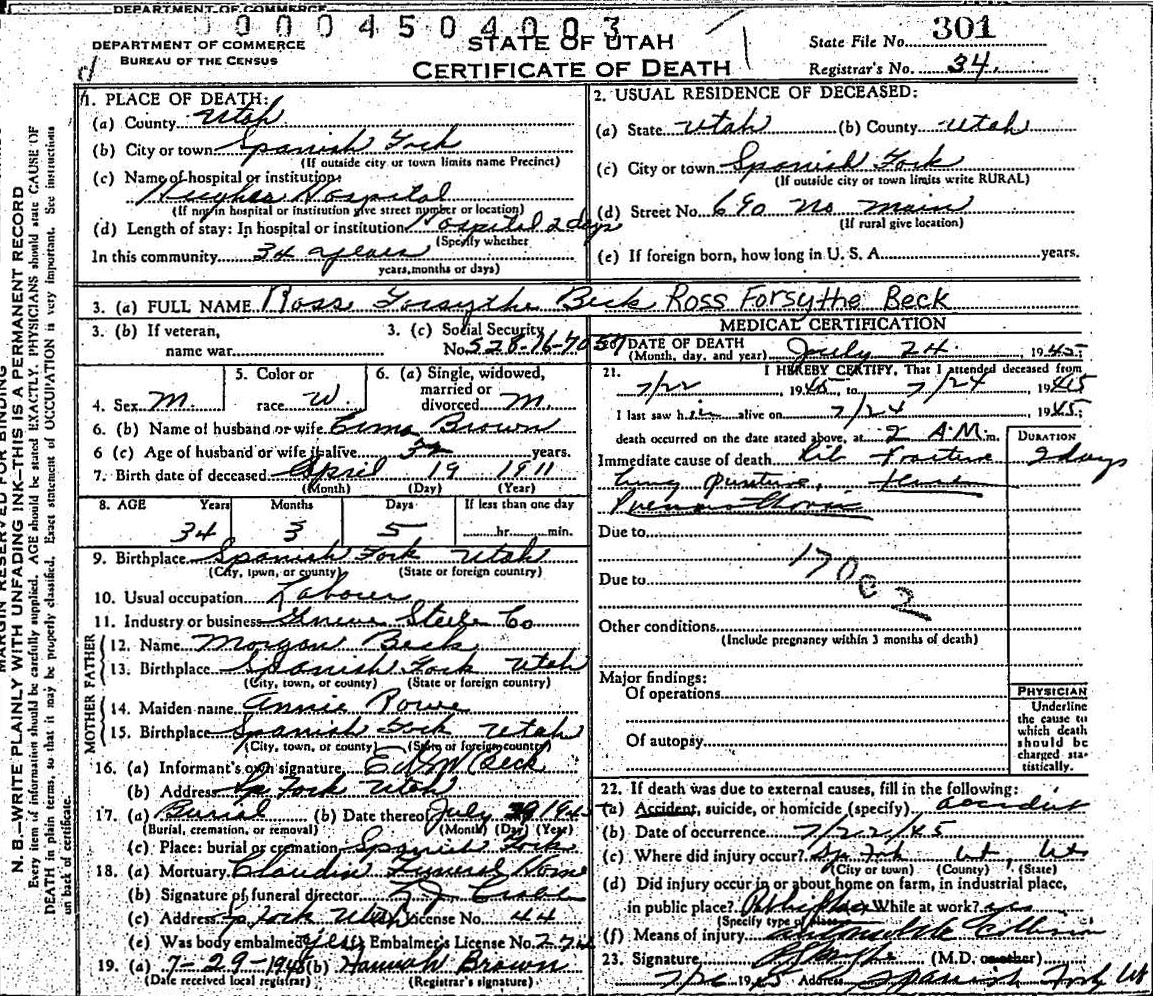 DEPARTMENT OF COMMERCE
0 0 0 4 5 0 4 0 0 3
DEPARTMENT OF COMMERCE
BUREAU OF THE CENSUS
STATE OF UTAH
CERTIFICATE OF DEATH
State File No. 301
Registrar's No. 34
MARGIN RESERVED FOR BINDING
N. B.—WRITE PLAINLY WITH UNFADING INK—THIS IS A PERMANENT RECORD
Every item of information should be carefully supplied. AGE should be stated EXACTLY. PHYSICIANS should state CAUSE OF
DEATH in plain terms, so that it may be properly classified. Exact statement of OCCUPATION is very important. See instructions
on back of certificate.
1. PLACE OF DEATH:
(a) County Utah
(b) City or town Spanish Fork
(If outside city or town limits name Precinct)
(c) Name of hospital or institution:
Hughes Hospital
(If not in hospital or institution give street number or location)
(d) Length of stay: In hospital or institution Hospital 2 days
(Specify whether
In this community 34 years
years, months or days)
2. USUAL RESIDENCE OF DECEASED:
(a) State Utah (b) County Utah
(c) City or town Spanish Fork
(If outside city or town limits write RURAL)
(d) Street No. 690 No Main
(If rural give location)
(e) If foreign born, how long in U. S. A. years.
3. (a) FULL NAME Ross Forsythe Beck Ross Forsythe Beck
3. (b) If veteran,
name war
3. (c) Social Security
No. 528-16-7057
4. Sex M.
5. Color or
race W.
6. (a) Single, widowed,
married or
divorced M.
6. (b) Name of husband or wife Brown
6 (c) Age of husband or wife if alive 32 years.
7. Birth date of deceased April 19 1911
(Month) (Day) (Year)
8. AGE Years Months Days If less than one day
34 3 5 hr. min.
9. Birthplace Spanish Fork Utah
(City, town, or county) (State or foreign country)
10. Usual occupation Laborer
11. Industry or business Steele Co
FATHER
12. Name Morgan Beck
13. Birthplace Spanish Fork Utah
(City, town, or county) (State or foreign country)
MOTHER
14. Maiden name Annie Rowe
15. Birthplace Spanish Fork Utah
(City, town, or county) (State or foreign country)
16. (a) Informant's own signature Beck
(b) Address Sp Fork Utah
17. (a) Burial (b) Date thereof July 194
(Burial, cremation, or removal) (Month) (Day) (Year)
(c) Place: burial or cremation Spanish Fork
18. (a) Mortuary Claudin Funeral Home
(b) Signature of funeral director
(c) Address Sp Fork Utah License No. 44
(e) Was body embalmed yes Embalmer's License No. 27
19. (a) 7-29-1945 (b) Hannah Brown
(Date received local registrar) (Registrar's signature)
MEDICAL CERTIFICATION
20. DATE OF DEATH
(Month, day, and year) July 24, 1945;
21. I HEREBY CERTIFY, That I attended deceased from
7/22, 1945, to 7/24 1945
I last saw him alive on 7/24 1945;
death occurred on the date stated above, at 2 A.M. m.
DURATION
Immediate cause of death Rib Fracture 2 days
Lung puncture,
Due to
Due to
17002
Other conditions
(Include pregnancy within 3 months of death)
Major findings:
Of operations
Of autopsy
PHYSICIAN
Underline
the cause to
which death
should be
charged sta-
tistically.
22. If death was due to external causes, fill in the following:
(a) Accident, suicide, or homicide (specify) accident
(b) Date of occurrence 7/22/45
(c) Where did injury occur? Sp Fork Ut, Ut
(City or town) (County) (State)
(d) Did injury occur in or about home on farm, in industrial place,
in public place? While at work? yes
(Specify type of place)
(f) Means of injury automobile Collision
23. Signature (M.D. or other)
7/26 1945 Address Spanish Fork Ut